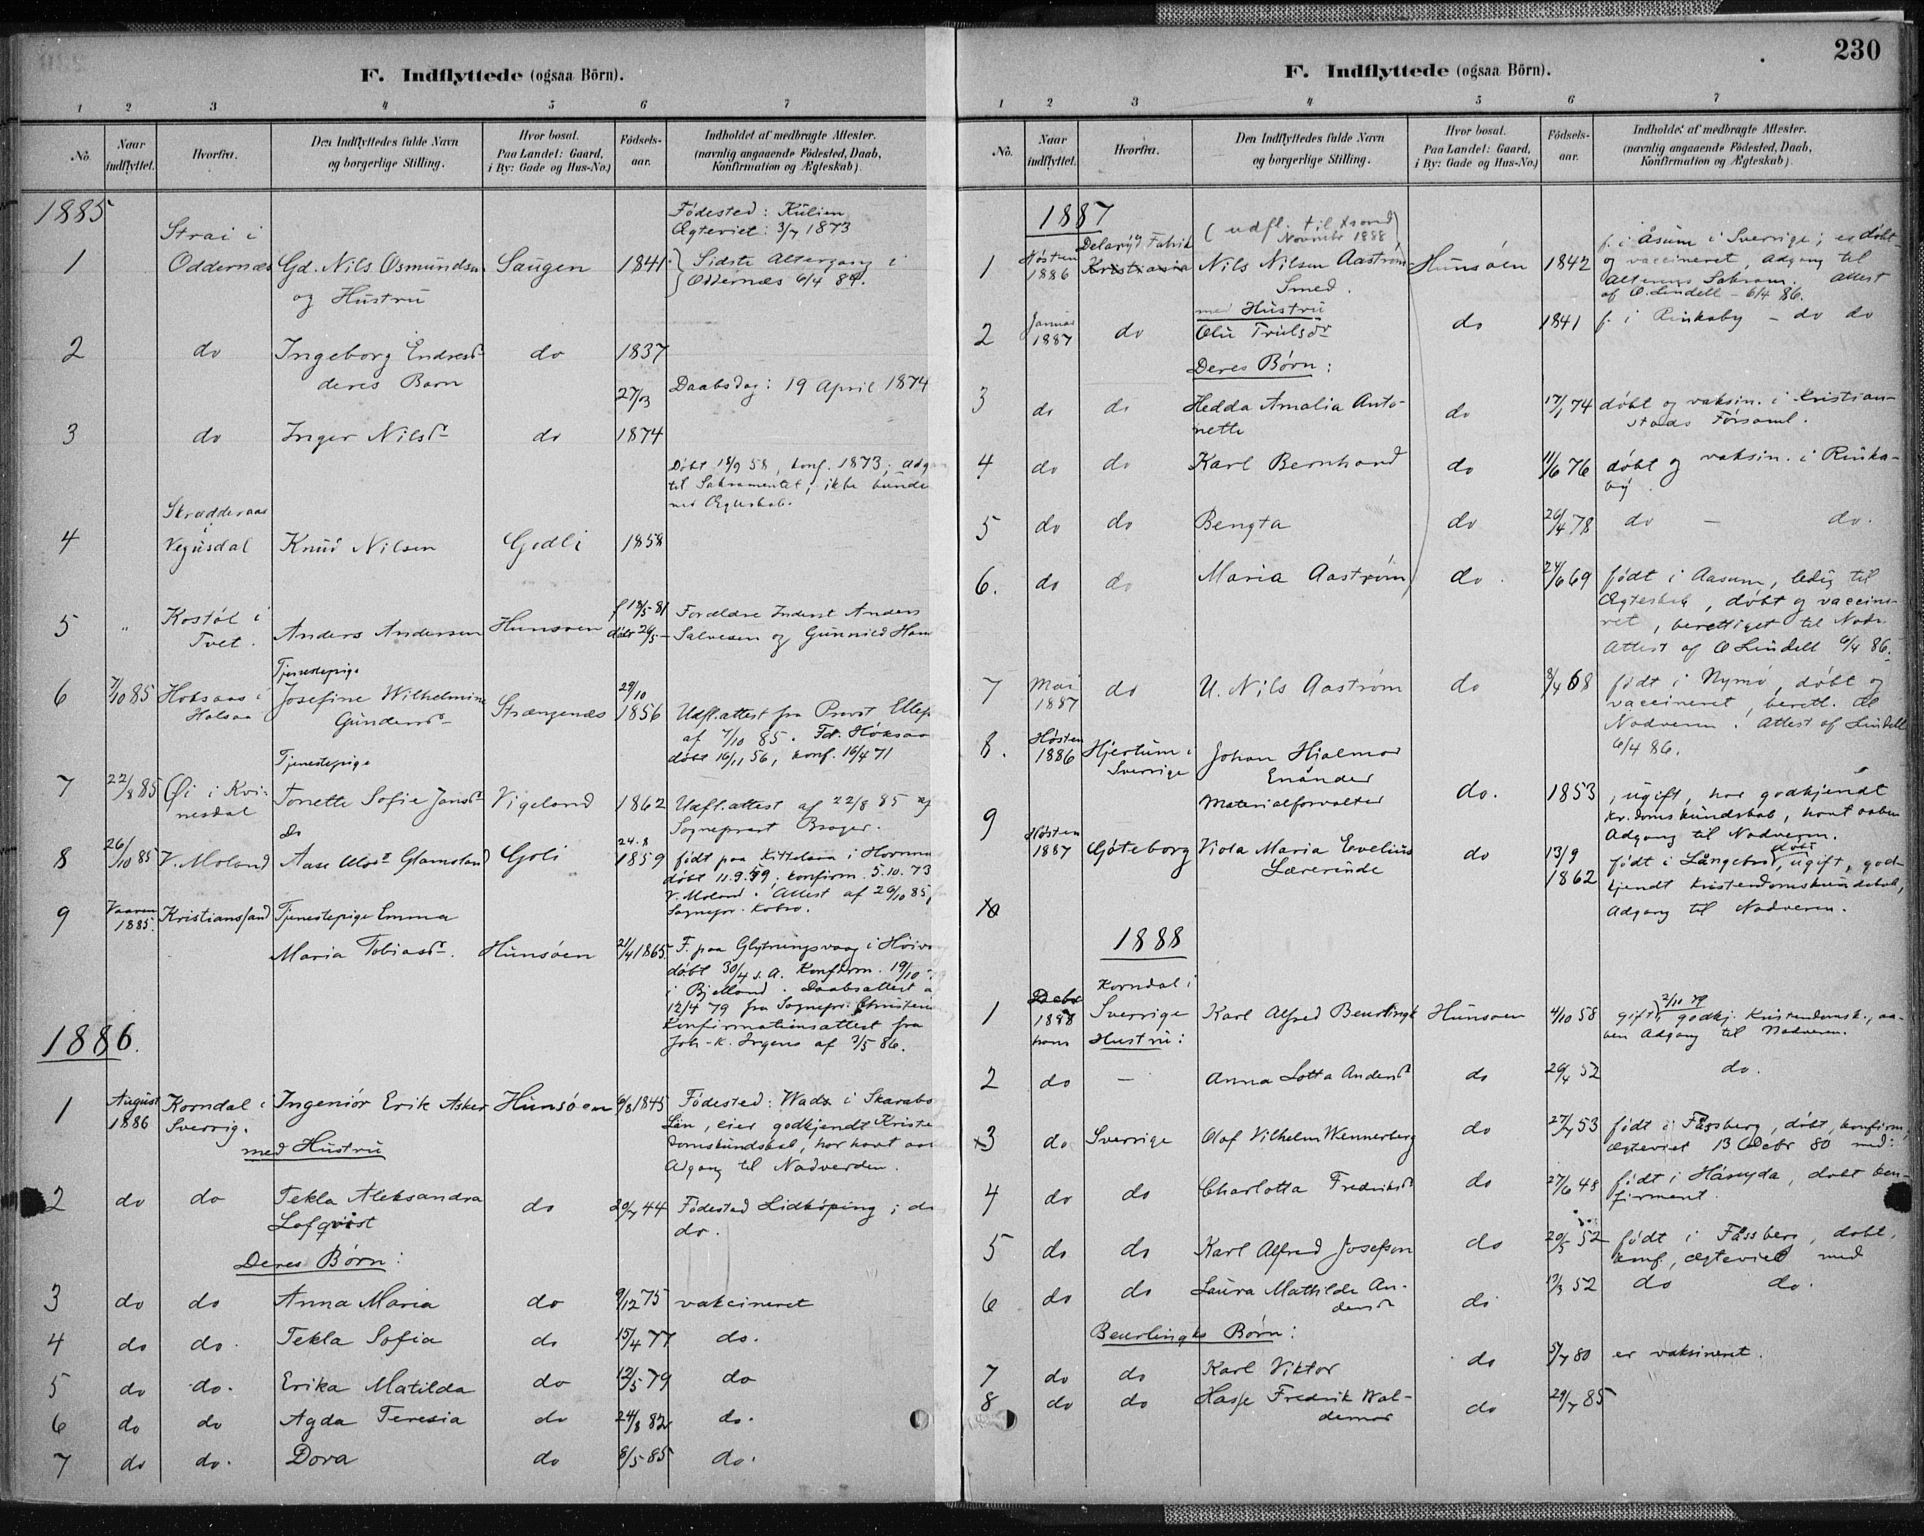 230
F. Indflyttede (ogsaa Börn).
1 2 3 4 5 6 7
No. Naar indflyttet. Hvorfra. Den Indflyttedes fulde Navn og borgerlige Stilling. Hvor bosat. Paa Landet: Gaard, i By: Gade og Hus-No.) Födsels-aar. Indholdet af medbragte Attester. (navnlig angaaende Födested, Daab, Konfirmation og Ægteskab).
1885
Födested: Külien
Ægteviet: 3/7 1873
Strai i
1 Oddernæs Gd. Nils Osmundsen Saugen 1841 Sidste Altergang i
og Hustru Oddernæs 6/4 84.
2 do Ingeborg Endresdr do 1837
deres Barn
27/03 Daabsdag: 19 April 1874
3 do Inger Nilsdr do 1874
Döbt 18/9 58, konf. 1873; adg
til Sakramentet; ikke bunde
ved Ægteskab.
Skrædderaas
i
4 Vegusdal Knud Nilsen Godli 1858
5 " Kostöl i Anders Andersen Hunsoen f 18/5-81 Forældre Inderst Anders
Tvet. döbt 26/5- Salvesen og Gunnild
Tjenestepige
6 7/10 85 Hoksaas i Josefine Wilhelmine 29/10
Halsaa Gundersdr Strængenæs 1856 Udfl.attest fra Provst Ellef
af 7/10 85. Fd. Höksaa
döbt 16/11 56, konf. 16/4 71
Tjenestepige
7 22/8 85 Øi i Kvi- Tonette Sofie Jansdr Vigeland 1862 Udfl.attest af 22/8 85 af
nesdal Sogneprest Brager.
do
8 26/10 85 V. Moland Aase Olesdr Glamsland Goli 24.8 1859 födt paa Kittelaaa i Hornnæs
döbt 11.9.59. konfirm. 5.10.73
V. Moland. Attest af 26/10 85,
Sognepr. Kobro.
9 Vaaren Kristiansand Tjenestepige Emma
1885.
Maria Tobiasdr. Hunsöen 21/4 1865 F. paa Glytrungsvaag i Höivaa
döbt 30/4 s.a. Konfirm. 19/10
i Bjelland. Daabsattest af
12/4 79 fra Sognepr. Christen
Konfirmationsattest fra
Joh. K. Irgens af 3/5 86.
1886.
1 August Korndal i Ingeniör Erik Asker Hunsöen 9/8 1845 Födested: Wads i Skarabor
1886 Sverrig. Län, eier godkjendt Kriste
med Hustru domskundskab, har havt aa
Adgang til Nadverden.
2 do do Tekla Aleksandra do 20/7 44 Födested Lidköping; do
Lofqvist do.
Deres Børn:
3 do do Anna Maria do 9/12 75 vakcineret
4 do do. Tekla Sofia do 15/4 77 do.
5 do do. Erika Matilda do 12/5 79 do
6 do do Agda Teresia do 24/8 82 do.
7 do do. Dora do 8/5 85 do.
F. Indflyttede (ogsaa Börn).
1 2 3 4 5 6 7
No. Naar indflyttet. Hvorfra. Den Indflyttedes fulde Navn og borgerlige Stilling. Hvor bosat. Paa Landet: Gaard, i By: Gade og Hus-No.) Födsels-aar. Indholdet af medbragte Attester. (navnlig angaaende Födested, Daab, Konfirmation og Ægteskab).
1887
(udfl. til Xsand
Novembr 1888)
Delaryd Fabrik
1 Høsten Kristiania Nils Nilsen Aaström Hunsöen 1842 f. i Åsum i Sverrige; er döbt
1886 Smed. og vaccineret, Adgang til
Alterens Sakram. Attest
af O. Lindell - 6/4 86.
med Hustru
2 Januar do Olu Trulsdr do 1841 f. i Rinkaby - do do
1887
Deres Børn:
3 do do Hedda Amalia Anto- do 17/1 74 döbt og vaksin. i Kristian-
nette stads Församl.
4 do do Karl Bernhard do 11/6 76 döbt og vaksin. i Rinka-
by.
5 do do Bengta do 26/4 78 do - do.
6. do do Maria Aaström do. 24/6 69 födt i Aasum, ledig til
Ægteskab, döbt og vaccine-
ret, berettiget til Nadv.
Attest af O Lindell 6/4 86.
7 Mai do U. Nils Aaström do 3/4 68 födt i Nymö, döbt og
1887 vaccineret, berett. til
Nadveren. Attest af Lindell
6/4 86.
8. Høsten Hjertum i Johan Hjalmar
1886 Sverrige Enander
Materialforvalter do. 1853, ugift, har godkjendt
Kr.domskundskab, havt aaben
Adgang til Nadveren.
9 Høsten Göteborg Viola Maria Evelius do 13/9 födt i Långebro, döbt ugift, god-
1887 Lærerinde 1862 kjendt Kristendomskundskab,
Adgang til Nadveren.
10
1888
Korndal i
1 Debr Sverrige Karl Alfred Beurlingk Hunsoen 4/10 58 gift 2/10 79, godkj. Kristendomsk., aa-
1888 ben Adgang til Nadveren.
Hustru:
2 do - Anna Lotta Andersdr do 29/4 52 do.
x3 do Sverrige Olof Vilhelm Wennerberg do 27/7 53 födt i Fåssberg, döbt, konfirm,
ægteviet 13 Octbr 80 med:
4 do do Charlotta Fredriksdr do 27/6 48 födt i Hångda, döbt kon-
firmert.
5 do do Karl Alfred Josefson do 20/5 52 födt i Fåssberg, döbt,
konf, ægteviet med
6 do do Laura Mathilde An- do 19/3 52 do do.
dersdr
Beurlingks Børn:
7 do do Karl Viktor do 5/7 80 er vaksineret.
8 do do Hasse Fredrik Wal- do 29/7 85
demar